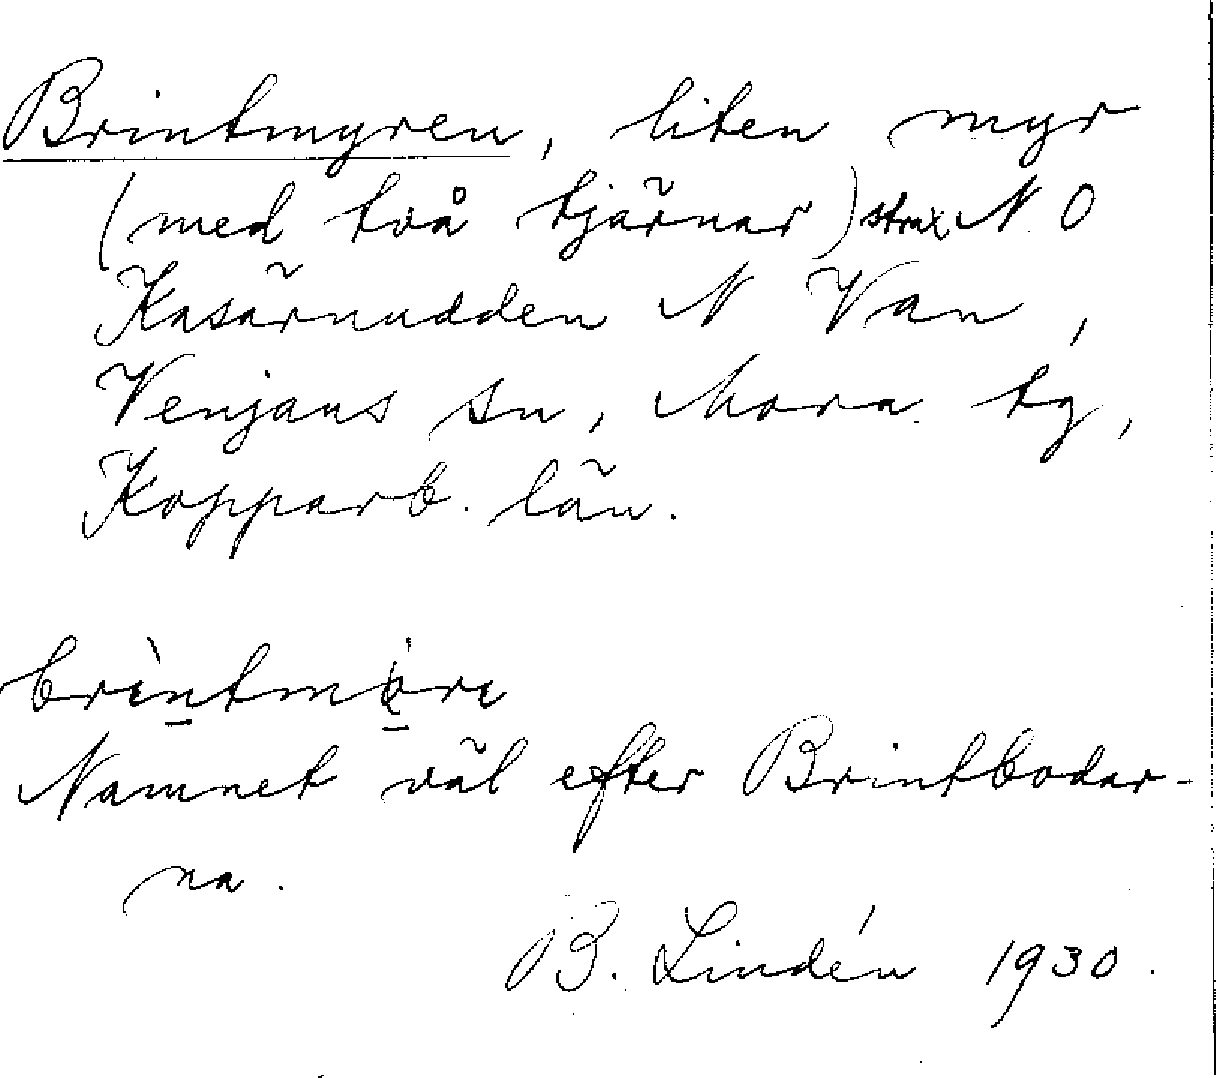 Brintmyren, liten myr
(med två tjärnar) strax N. O
Kasärnudden N Van,
Venjans sn, Mora tg,
Kopparb. län.
Namnet väl efter Brintbodar-
na.
B. Lindén 1930.